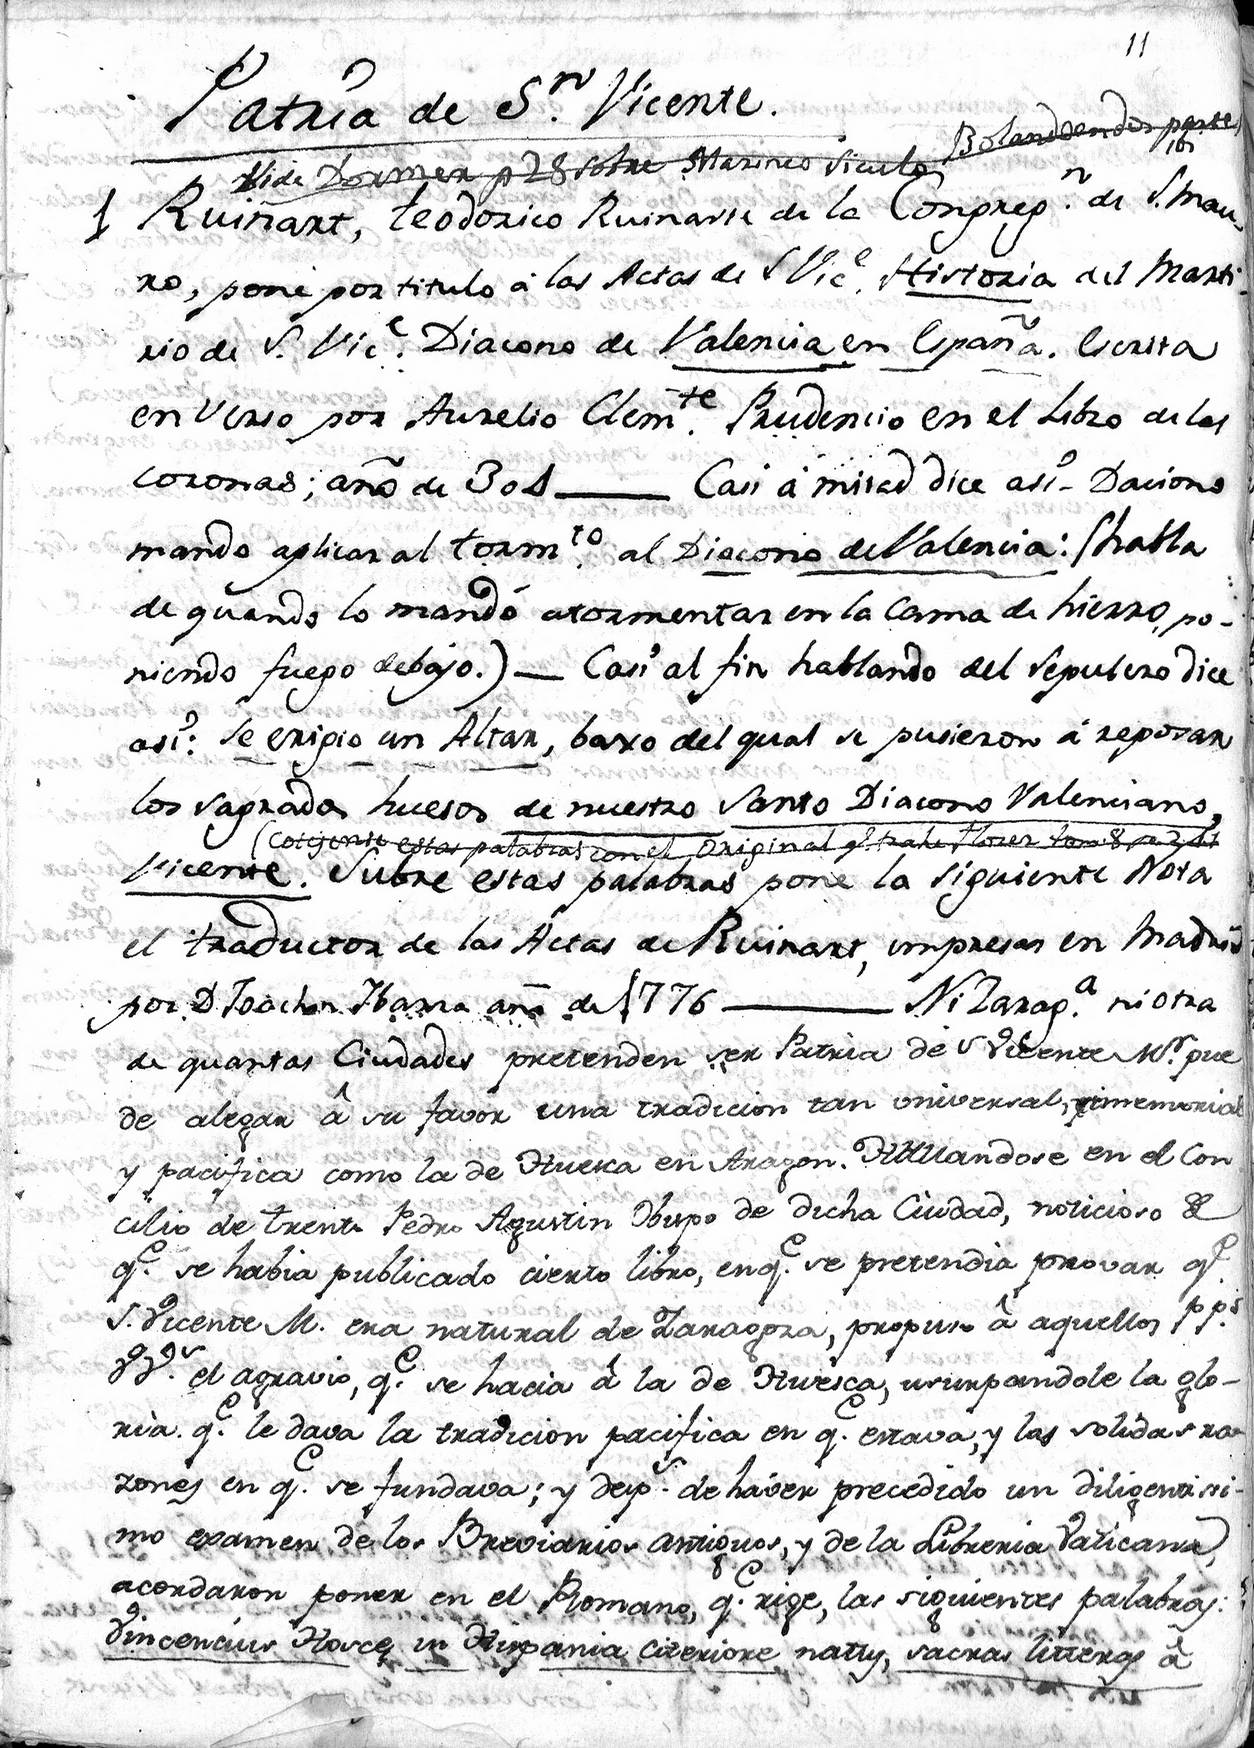 11
Patria de Sn. Vicente.
Vide Dormer p 28 sobre Marineo Siculo
1 Ruinart, teodorico Ruinarte de la Congregn. de S. Mau-
ro, pone por titulo á las Actas de S Vice. Historia del Marti-
rio de S. Vice. Diacono de Valencia en España. Escrita
en Verso por Aurelio Clemte. Prudencio en el Libro de las
coronas; año de 304 —— Casi á mitad dice asi- Daciono
mando aplicar al tormto. al Diacono de Valencia: (habla
de quando lo mandó atormentar en la Cama de hierro, po-
niendo fuego debajo.) — Casi al fin hablando del Sepulcro dice
asi: Se erigio un Altar, baxo del qual se pusieron á reposar
los sagrados huesos de nuestro Santo Diacono Valenciano,
(Cotejense estas palabras con el Original qe. trahe Florez tom 8
Vicente. Sobre estas palabras pone la siguiente Nota
el traductor de las Actas de Ruinart, impresas en Madrid
por D Joachin Ibarra año de 1776 —— Ni Zarага. ni otra
de quantas Ciudades pretenden ser Patria de S Vicente Mr. pue
de alegar â su favor una tradicion tan universal, inmemorial
y pacifica como la de Huesca en Aragon. Hallandose en el Con
cilio de trento Pedro Agustin Obispo de dicha Ciudad, noticioso de
qe. se habia publicado cierto libro, en qe. se pretendia provar qe.
S. Vicente M. era natural de Zaragoza, propuso â aquellos PPs.
el agravio, qe. se hacia â la de Huesca, usurpandole la glo-
ria. qe. le dava la tradicion pacifica en qe. estava, y las solidas ra-
zones en qe. se fundava; y desps. de haver precedido un diligentisi-
mo examen de los Breviarios antiguos, y de la Libreria Vaticana,
acordaron poner en el Romano, qe. rige, las siguientes palabras:
Vincencius Hosce in Hispania citeriore natus, sacras litteras â